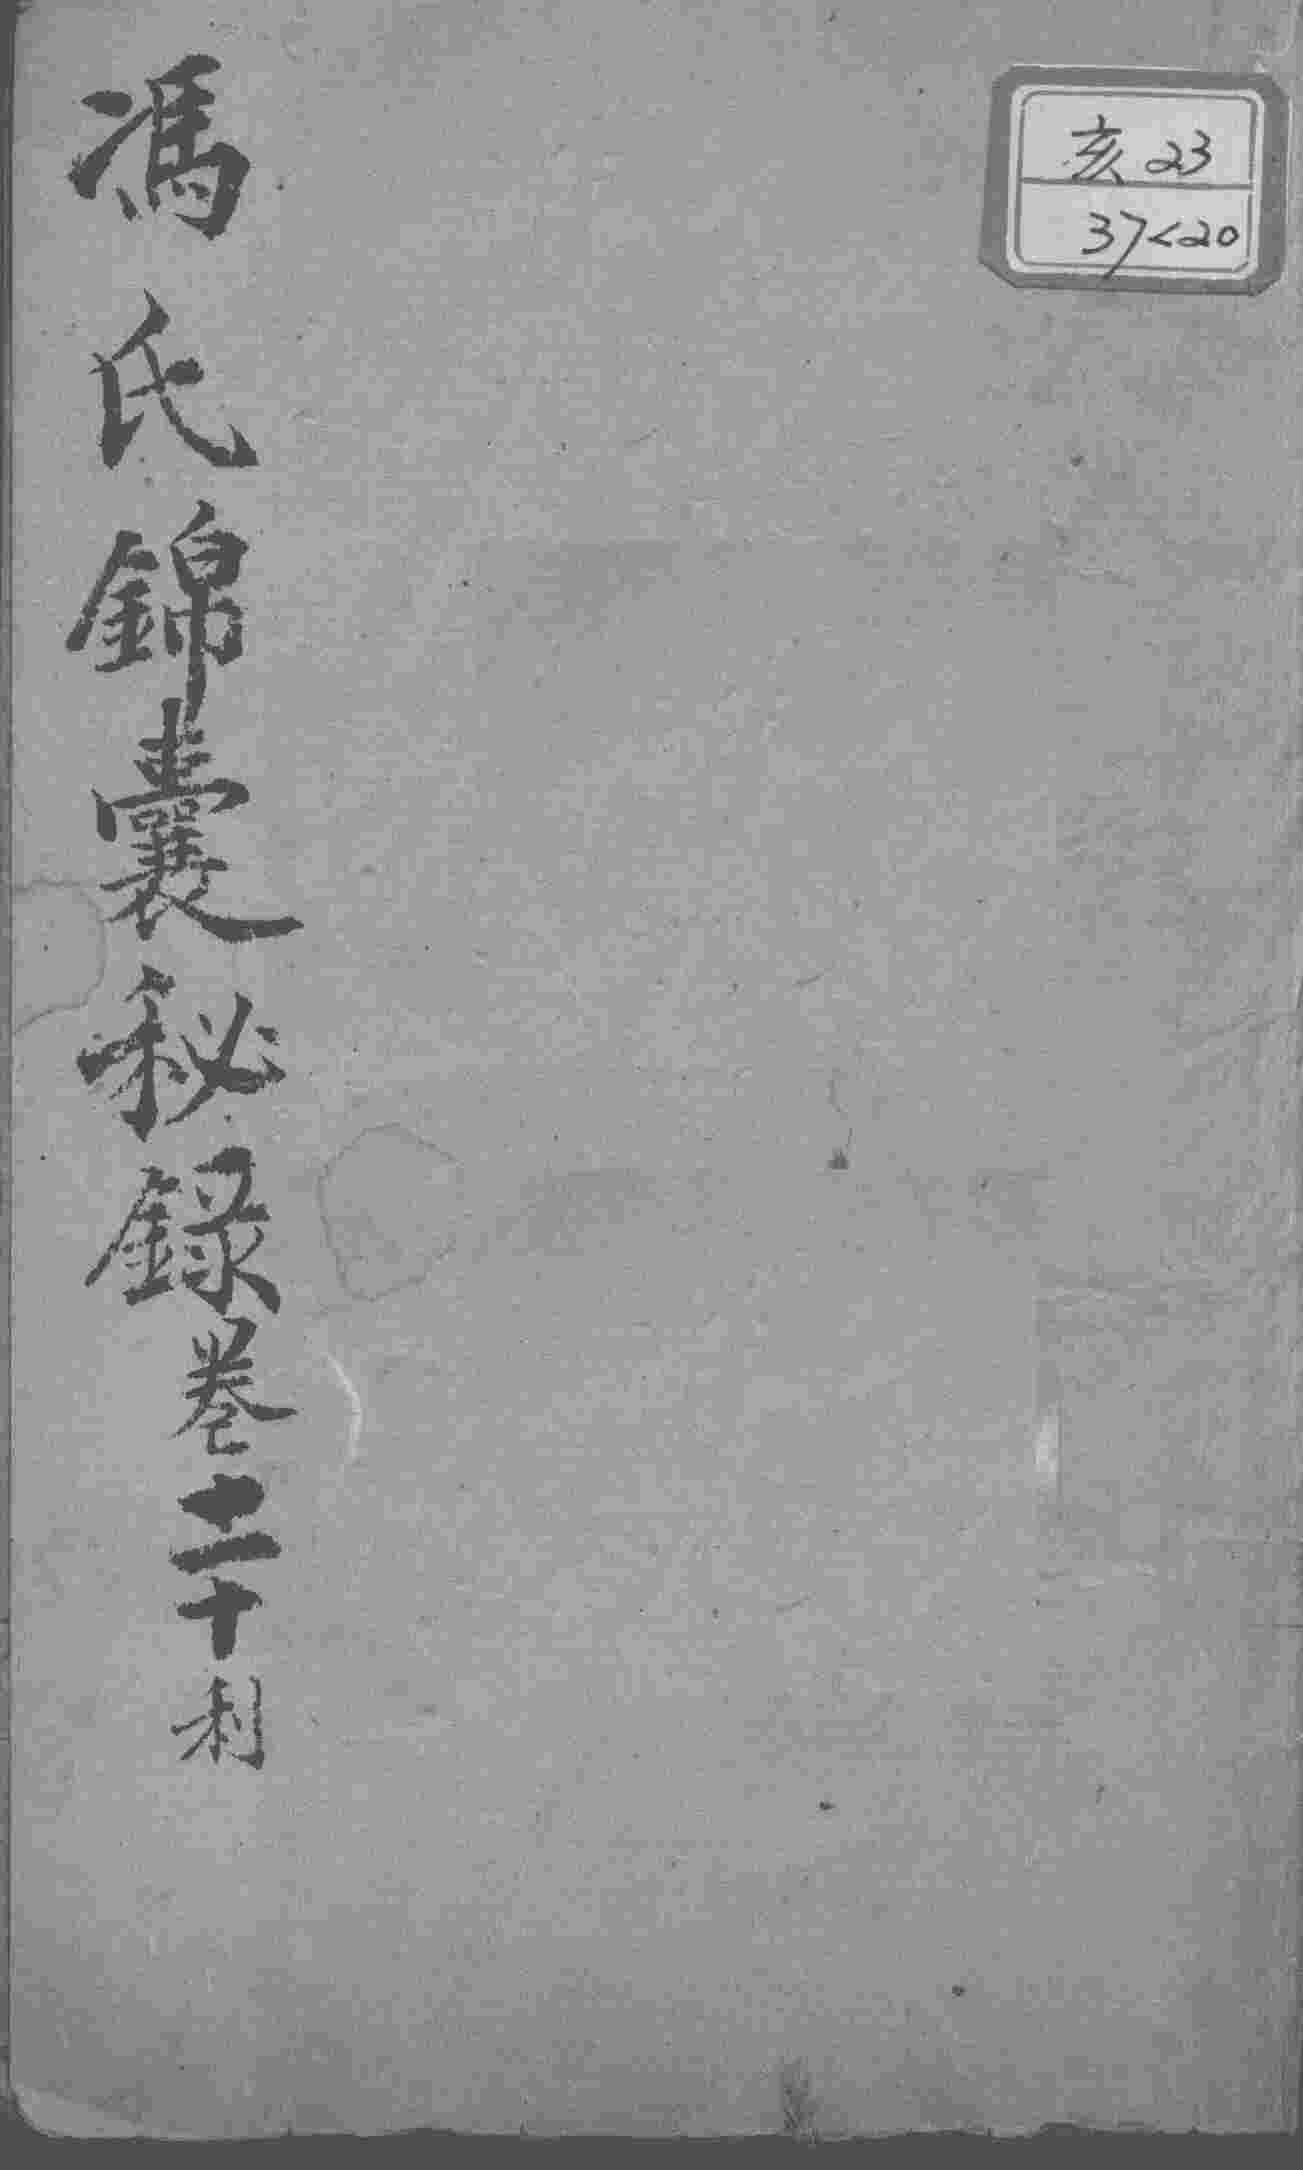 亥23
37<20
馮氏錦囊秘錄卷二十利